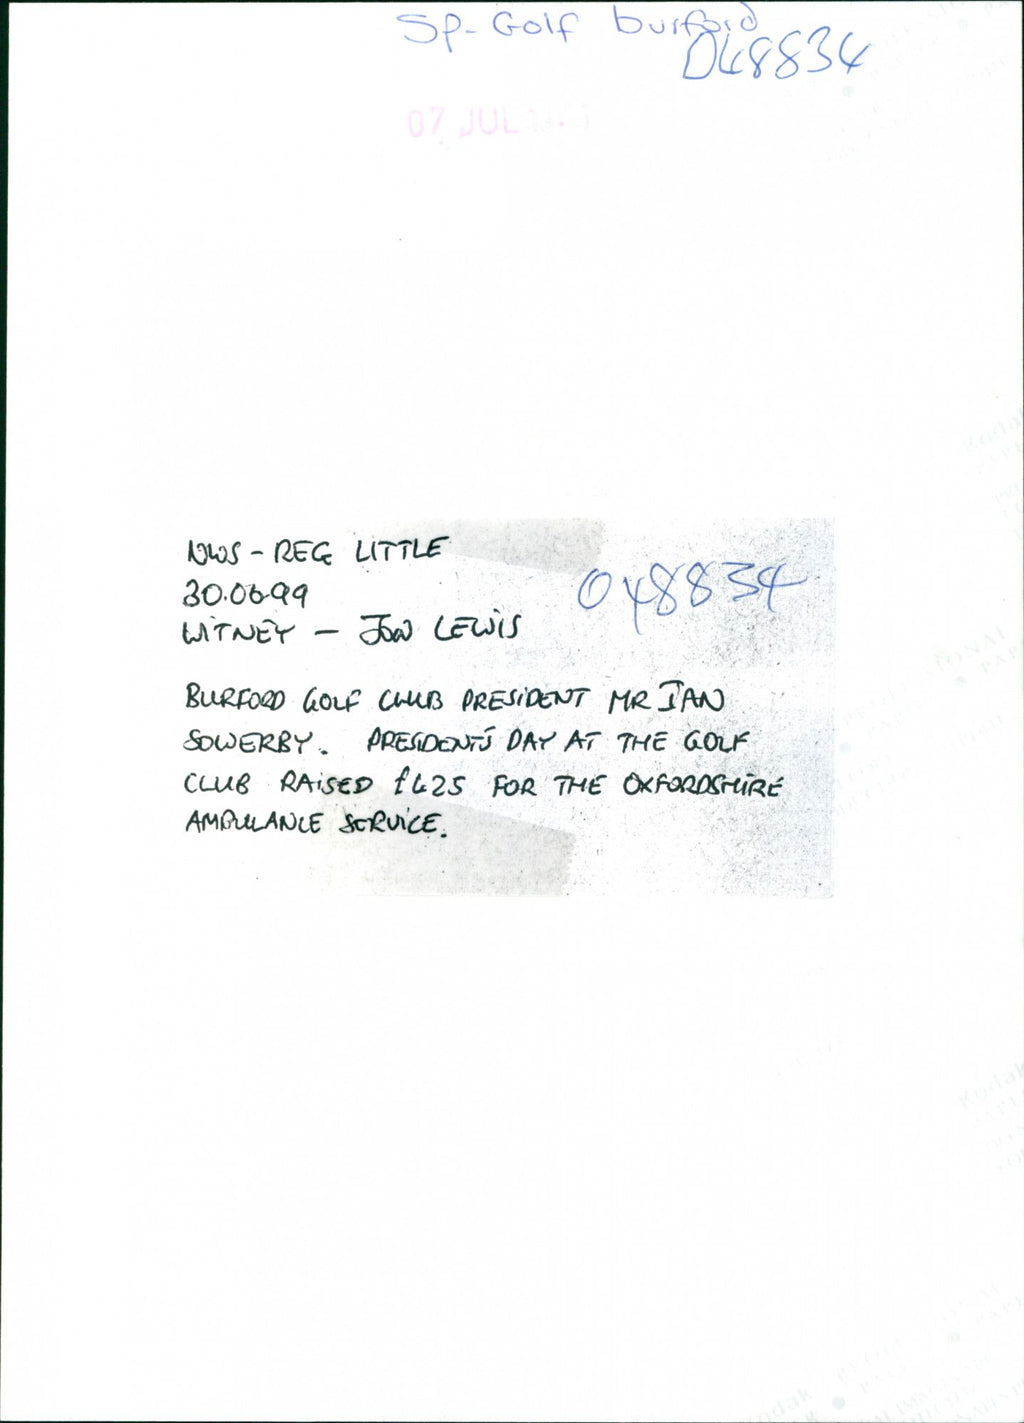 Sp- Golf burford
048834
07 JUL
NWS - REG LITTLE
30.06.99
048834
WITNEY - JON LEWIS
BURFORD GOLF CLUB PRESIDENT MR IAN
SOWERBY. PRESIDENT'S DAY AT THE GOLF
CLUB RAISED £625 FOR THE OXFORDSHIRE
AMBULANCE SERVICE.
Kodak